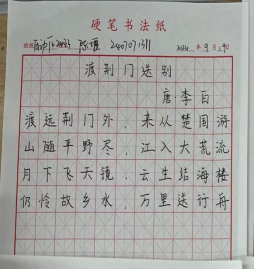 硬笔书法纸
班级
2024年9月
渡荆门送别
唐李白
渡远荆门外，来从楚国游
山随平野尽，江入大荒流
月下飞天镜，云生结海楼
仍怜故乡水，万里送行舟